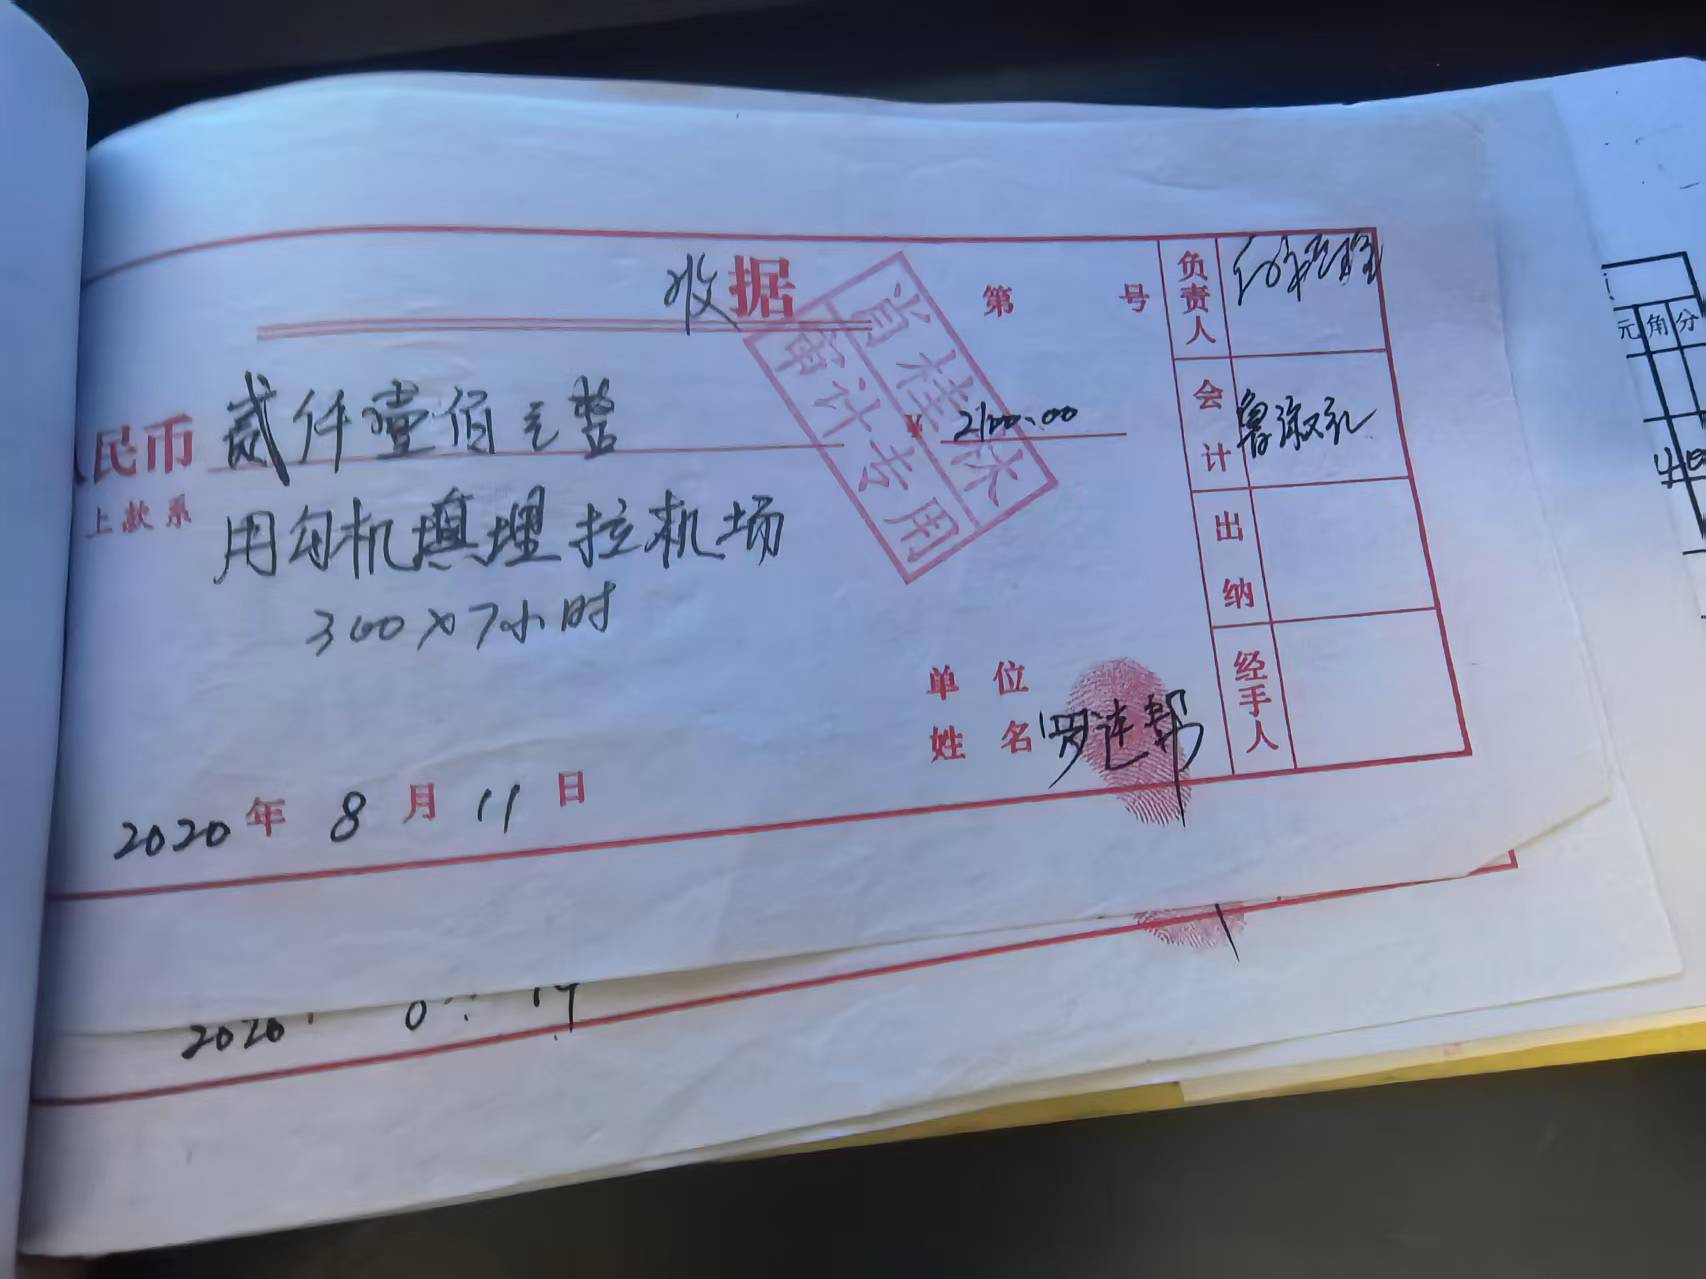 收据
第 号
民币 贰仟壹佰元整 ¥ 2100.00
上款系 用勾机填埋拉机场
300×7小时
单位
姓名 罗连帮
2020年 8月 11日
负责人
会计
出纳
经手人
肖桂林
审计专用
2020
元角分